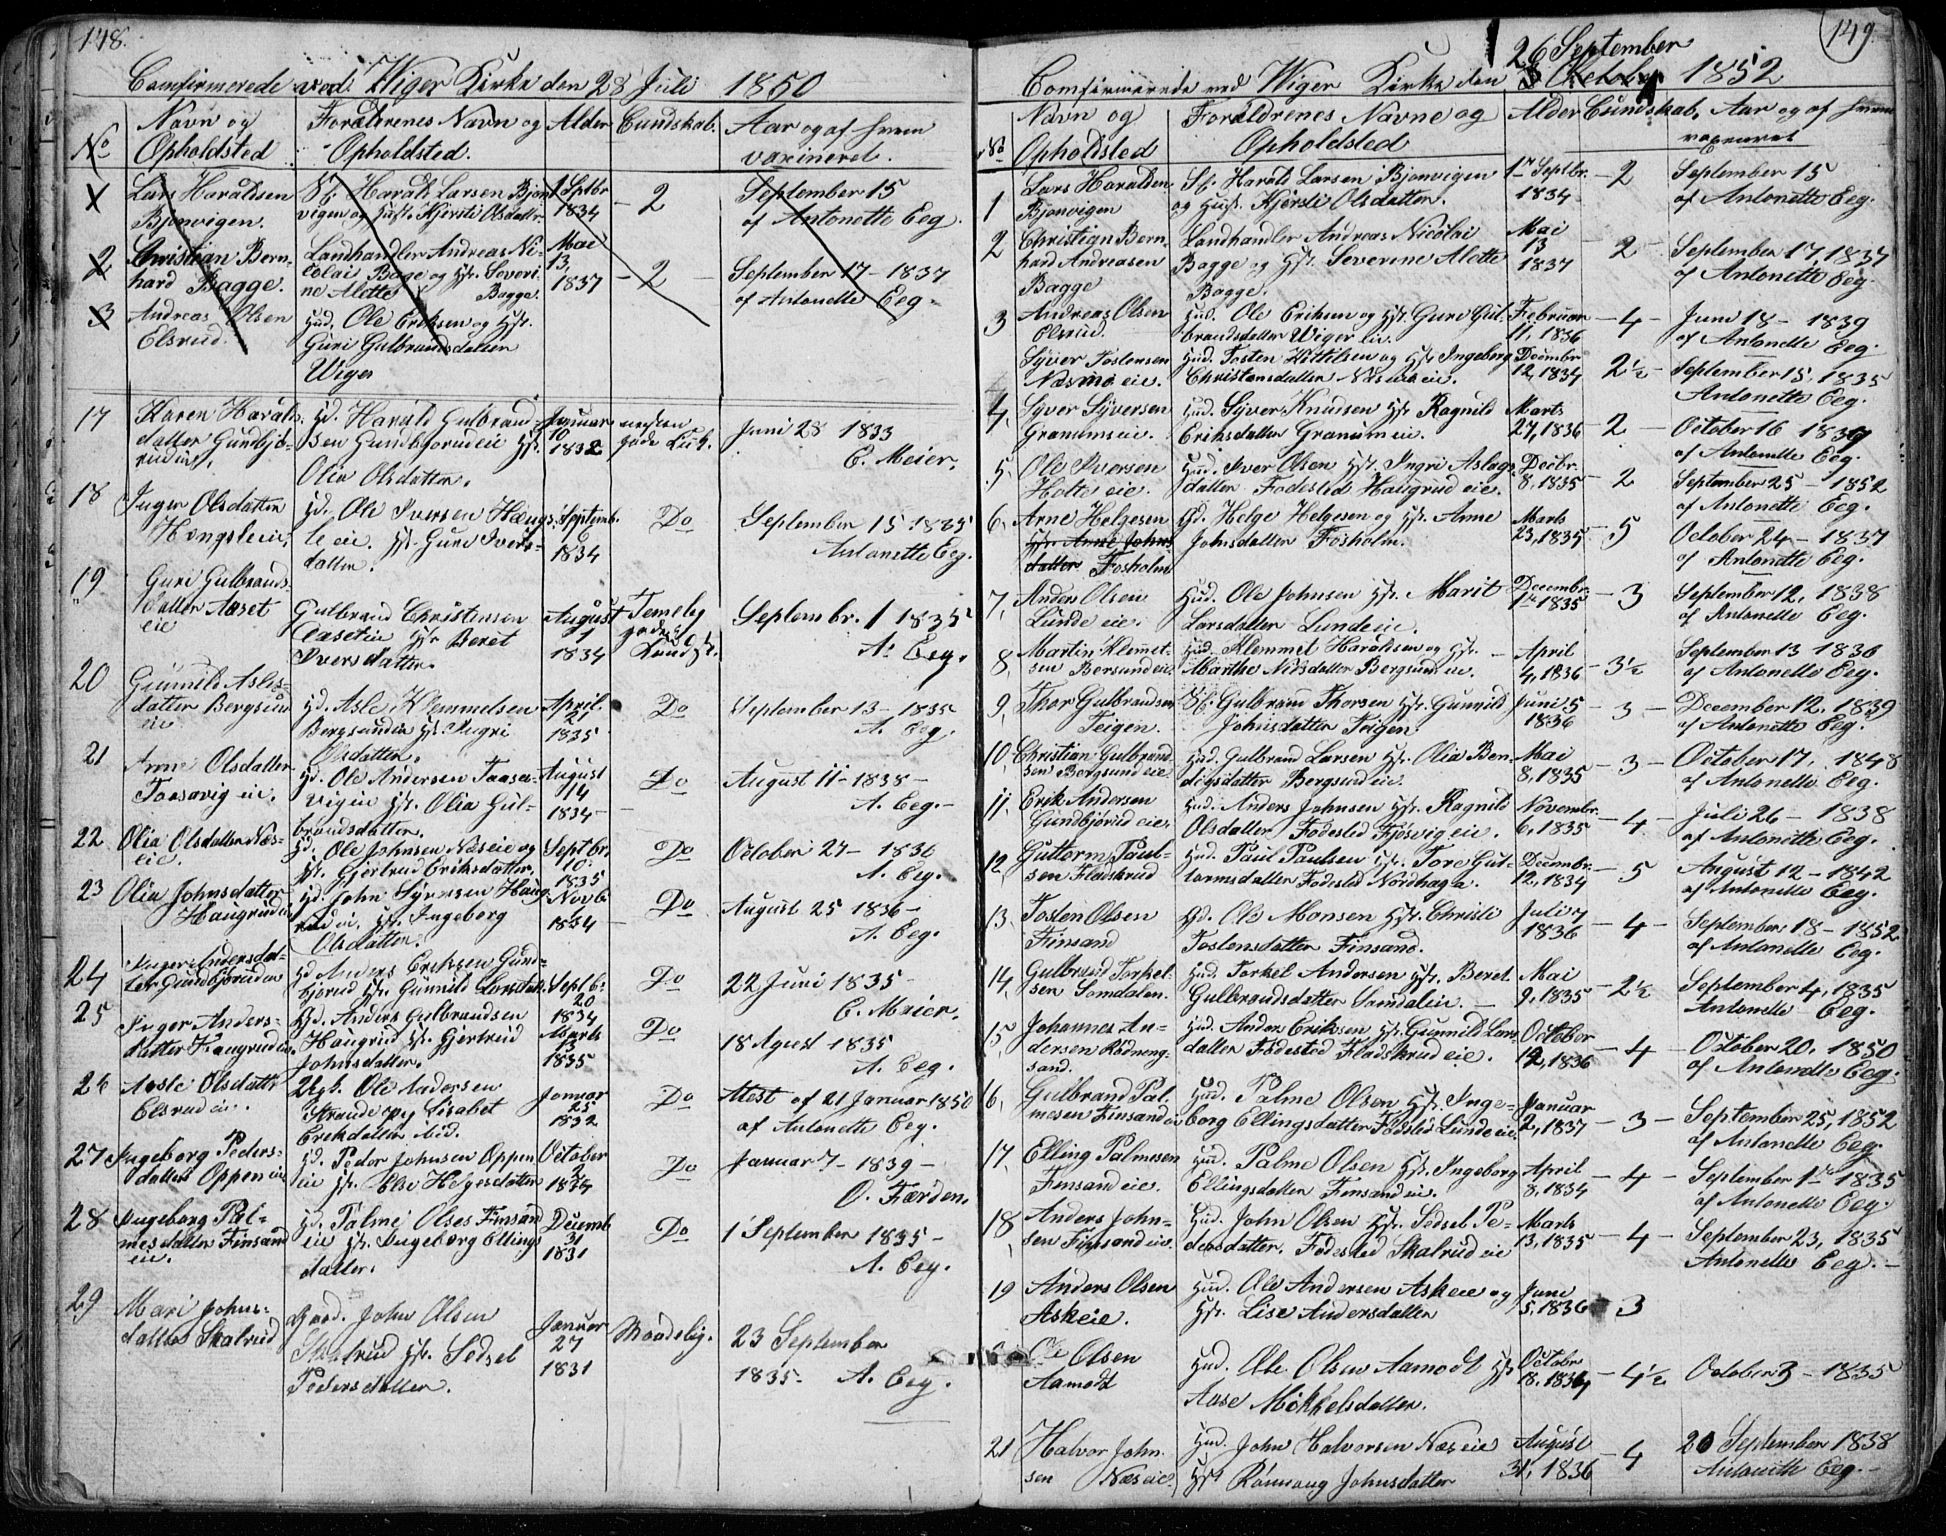 148.
Comfirmerede ved Wiger Kirke den 28 Juli 1850
No
Navn og
Opholdsted
Forældrenes Navn og
Opholdsted.
Alder
Cundskab.
Aar og af hvem
vaxineret.
1
Lars Haraldsen
Bjonvigen.
Sf. Harald Larsen Bjon-
vigen og Hust. Kjersti Olsdatter
1 Sptbr
1834
2
September 15
af Antonette Eeg.
2
Christian Bern-
hard Bagge.
Landhandler Andreas Ni-
colai Bage og Hst. Severi-
ne Alette Bagge.
Mai
13,
1837
2
September 17 - 1837
af Antonette Eeg.
3
Andreas Olsen
Elsrud.
Hud. Ole Eriksen og Hst.
Guri Gulbrandsdatter
Wiger
17
Karen Harals-
datter Gundbjø-
rud eie,
Hd. Harald Gulbrand-
sen Gundbjorud eie Hst.
Olia Olsdatter.
Januar
10
1832
næsten
gode Kdsk.
Juni 28 1833
C. Meier,
18
Inger Olsdatter
Hongsle eie,
Hd. Ole Iversen Hængs-
le eie. Hst. Guri Ivers-
datter.
Septemb.
6
1834
Do
September 15 1835
Antonette Eeg.
19
Guri Gulbrands-
datter Aaset
eie
Gulbrand Christensen
Aaset eie Hst Beret
Iversdatter.
August
1
1834
Temelig
gode
Kundsk.
Septembr. 1 1835
A. Eeg.
20
Gunnild Asles-
datter Bergsun
eie
Hd. Asle Klemmetsen
Bergsund eie Hst. Ingri
Olsdatter.
April
21
1835
Do
September 13 - 1835
A. Eeg.
21
Anne Olsdatter
Taasavig eie.
Hd. Ole Andersen Taasa-
vig eie Hst. Olia Gul-
brandsdatter.
August
14
1834
Do
August 11 - 1838 -
A. Eeg. -
22
Olia Olsdatter Næs-
eie.
Hd. Ole Johnsen Næs eie og
Hst. Gjertrud Eriksdatter,
Septbr.
10
1835
Do
October 27 - 1836
A. Eeg.
23
Olia Johnsdatter
Haugrud eie
Hd. John Syversen Haug-
rud eie, Hst. Ingeborg
Olsdatter.
Novb.
6
1834
Do
August 25 1836 -
A. Eeg.
24
Inger Andersdat-
ter Gundbjorud eie
Hd Anders Eriksen Gund-
bjorud Hst. Gunnild Larsdatt.
Septb.
20
1834
Do
22 Juni 1835 -
C. Meier.
25
Inger Anders-
datter Haugrud eie,
Hd. Anders Gulbrandsen
Haugrud Hst. Gjertrud
Johnsdatter.
Marts
13
1835
Do
18 Agust 1835
A. Eeg.
26
Aasle Olsdattr
Elsrud eie.
Ugk. Ole Andersen
Strande og Lisabet
Erikdatter ibid.
Januar
25
1832
Do
Attest af 21 Januar 1850
af Antonette Eeg.
27
Ingeborg Peders-
datter Oppen eie
Hd. Peder Johnsen Oppen
eie Hst. Else Helgesdatter
October
2
1834
Do
Januar 7 - 1839 -
O. Færden.
28
Ingeborg Pal-
mesdatter Finsand
eie.
Hd. Palmej Olses Finsand
eie Hst. Ingeborg Ellings-
datter.
Decemb
31
1831
Do
1 September 1835 -
A. Eeg.
29
Mari Johns-
datter Skalrud
Gaard. John Olsen
Skalrud Hst. Sedsel
Pedersdatter.
Januar
27
1831
Maadelig.
23 September
1835 - A. Eeg.
149
Comfirmerede ved Wiger Kirke den 26 September
3 October 1852
No
Navn og
Opholdsted
Forældrenes Navne og
Opholdsted
Alder
Cundskab.
Aar og af hvem
vaxineret
1
Lars Haralden
Bjonvigen
Sf. Harald Larsen Bjonvigen
og Hust. Kjersti Olsdatter.
1n Septbr.
1834
- 2
September 15
af Antonette Eeg.
2
Christian Bern-
hard Andreasen
Bagge
Landhandler Andreas Nicolai
Bagge og Hst. Severine Alette
Bagge.
Mai
13
1837
2 -
September 17, 1837
af Antonette Eeg.
3
Andreas Olsen
Elsrud.
Hud. Ole Eriksen og Hst Guri Gul-
brandsdatter Wiger eie.
Februar
11, 1836
- 4 -
Juni 18 - 1839
af Antonette Eeg.
Syver Tostensen
Næsmo eie.
Hud. Tosten Kittilsen og Hst Ingeborg
Christensdatter Næsmo eie.
Decembr
12, 1834
2½ -
September 15, 1835
Antonette Eeg.
4,
Syver Syversen
Granum eie.
Hud. Syver Knudsen Hst. Ragnild
Eriksdatter Granum eie.
Marts
27, 1836
- 2
October 16 1837
af Antonette Eeg.
5.
Ole Iversen
Holte eie.
Hud. Iver Olsen Hst. Ingri Aslags-
datter Fodested Haugrud eie.
Decbr.
8, 1835
- 2
September 25 - 1852
af Antonette Eeg.
6,
Arne Helgesen
Hst. Anne Johns-
datter Fosholm
Gd. Helge Helgesen og Hst. Anne
Johnsdatter Fosholm.
Marts
23, 1835
- 5
October 24 - 1837
af Antonette Eeg.
7,
Anders Olsen
Lunde eie.
Hud. Ole Johnsen Hst. Marit
Larsdatter Lunde eie.
Decembr.
1ste 1835
- 3
September 12, 1838
af Antonette Eeg.
8,
Martin Klemet-
sen Bersund eie.
Hud. Klemmet Haraldsen og Hst. -
Marthe Nilsdatter Bergsund eie.
April
4, 1836
- 3½
September 13 1836
af Antonette Eeg.
9,
Thor Gulbrandsen
Teigen.
Sf. Gulbrand Thorsen Hst. Gunnild
Johnsdatter Teigen.
Juni 5
1836
- 3 -
December 12. 1839
af Antonette Eeg.
10,
Christian Gulbrand-
sen Bergsund eie
Hud. Gulbrand Larsen Hst. Olia Ben-
digsdatter Bergsund eie.
Mai
8, 1835
- 3 -
October 17. 1848
af Antonette Eeg.
11,
Erik Andersen
Gundbjorud eie,
Hud. Anders Johnsen Hst. Ragnild
Olsdatter Fodested Fjøsvig eie.
Novembr.
6, 1835
- 4 -
Juli 26 - 1838
af Antonette Eeg.
12,
Guttorm Paul-
sen Fladskrud
Hud. Paul Paulsen Hst. Tore Gut-
tormsdatter Fodested Nordhaga.
Decembr.
12, 1834
- 5
August 12 - 1842
af Antonette Eeg.
13.
Tosten Olsen
Finsand
Gd. Ole Monsen Hst. Christi
Tostensdatter Finsand.
Juli 7
1836
- 4 -
September 18 - 1852
af Antonette Eeg.
14,
Gulbrand Torkel-
sen Somdalen.
Hud. Torkel Andersen Hst. Beret
Gulbrandsdatter Somdal eie. -
Mai
9, 1835
- 2½
September 4, 1835
Antonette Eeg.
15,
Johannes An-
dersen Rødneng-
sand.
Hud. Anders Eriksen Hst. Gunnild Lars-
datter Fodested Fladskrud eie.
October
12, 1836
- 4 -
October 20. 1850
af Antonette Eeg.
16,
Gulbrand Pal-
mesen Finsand eie
Hud. Palme Olsen Hst. Inge-
borg Ellingsdatter Fodested Lunde eie
Januar
2, 1837
- 3 -
September 25, 1852
af Antonette Eeg.
17,
Elling Palmesen
Finsand eie.
Hud. Palme Olsen Hst. Ingeborg
Ellingsdatter Finsand eie.
April
8, 1834
- 4 -
September 1ste 1835
af Antonette Eeg.
18,
Anders John-
sen Finsand eie.
Hud. John Olsen Hst. Sedsel Pe-
dersdatter. Fodested Skalrud eie
Marts
13, 1835
- 4 -
September 23, 1835
Antonette Eeg. -
19
Anders Olsen
Ask eie.
Hud. Ole Andersen Ask eie og
Hst. Lise Andersdatter
Juni
5, 1836
3
Ole Olsen
Aamodt
Hud. Ole Olsen Aamodt Hst
Aase Mikkelsdatter.
Octobr
18. 1834
- 4½
October 3 - 1835
21
Halvor John-
sen Næs eie.
Hud. John Halvorsen Næs eie
Hst Rønnaug Johnsdatter
August
31, 1836
- 4
20 September 1838
Antonette Eeg. -